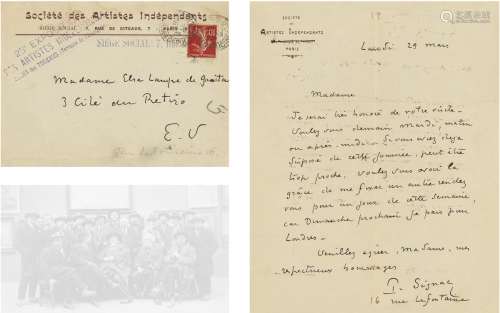 Société des Artistes Indépendants
SIÈGE SOCIAL, 7, RUE DE CITEAUX, 7, PARIS
SIÈGE SOCIAL, 7,
Madame Elsa
3 Cité du Retiro
E.V
SOCIÉTÉ
DES
ARTISTES INDÉPENDANTS
PARIS
Lundi 29 mars
Madame
Je serai très honoré de votre visite.
Voulez vous demain Mardi, matin
ou après-midi. Si vous aviez déjà
disposé de cette journée, peut être
trop proche, voulez vous avoir la
grâce de me fixer un autre rendez
vous pour un jour de cette semaine,
car Dimanche prochain je pars pour
Londres.
Veuillez agréer, Madame, mes
respectueux hommages
P. Signac
16 rue Lafontaine